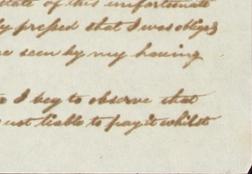 state of this unfortunate
pressed that I was obliged
seen by my having
I beg to observe that
not liable to pay it whilst